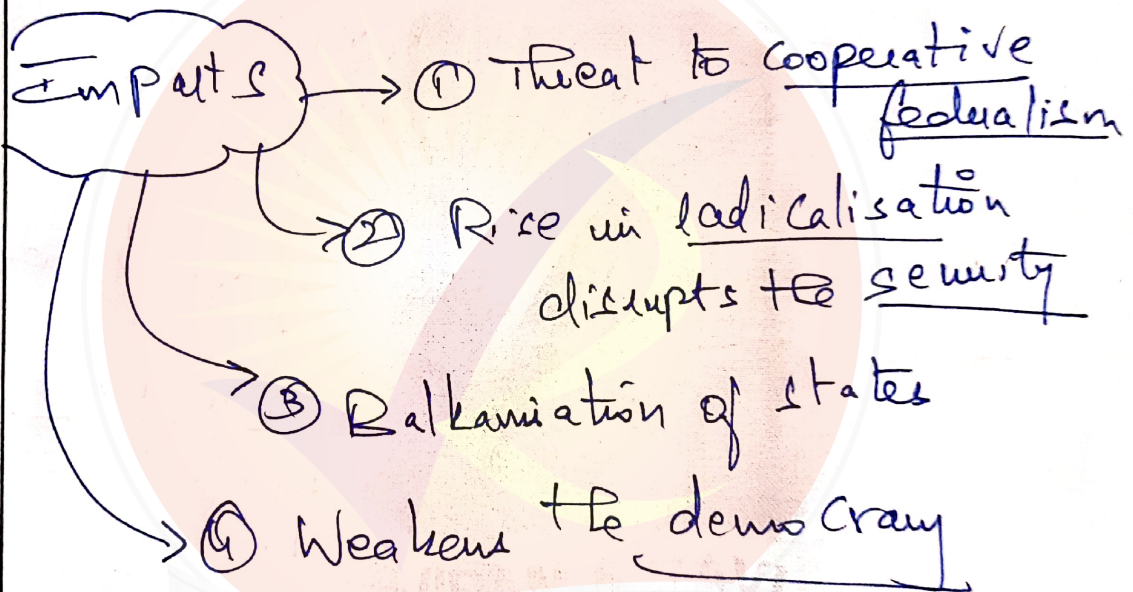 Impacts
① Threat to cooperative
federalism
② Rise in radicalisation
disrupts the security
③ Balkaniation of states
④ Weakens the democracy